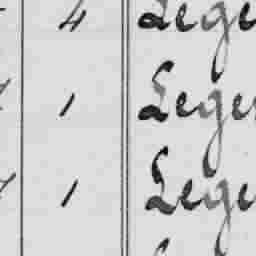 4 Lege
1 Lege
1 Lege